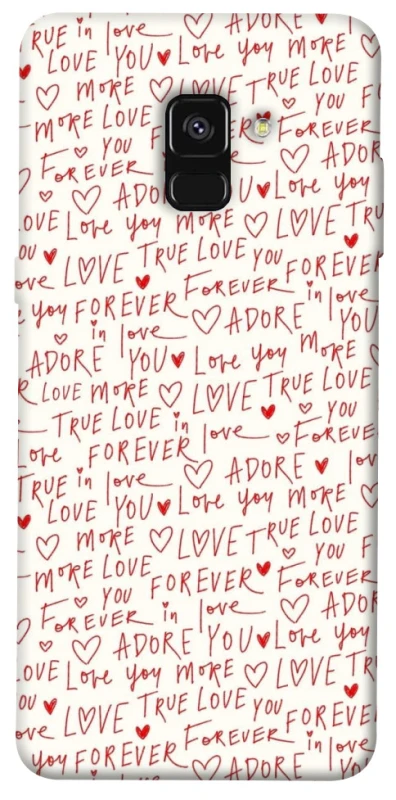 TRUE in love ADORE
LOVE YOU Love you MORE
MORE LOVE TRUE LOVE
MORE LOVE FOREVER YOU F
YOU FOREVER
FOREVER ADOR
ADO U Love you
LOVE Love you MORE LOVE TRU
OU TRUE LOVE YOU
ove LOVE FOREVER FOREVER
you FOREVER in love
in love ADORE YOU
ADORE YOU Love you MORE
LOVE MORE LOVE TRUE LOVE
TRUE LOVE in love YOU
Love FOREVER FOREVE
TRUE in love ADORE lo
LOVE YOU Love you MORE
MORE LOVE TRUE LOVE
MORE LOVE YOU F
YOU FOREVER FOREVER
FOREVER in love ADOR
ADORE YOU Love you
LOVE Love you MORE LOVE TR
OU TRUE LOVE YOU
ove LOVE FOREVER FOREVE
you FOREVER in love
in love ADORE YOU